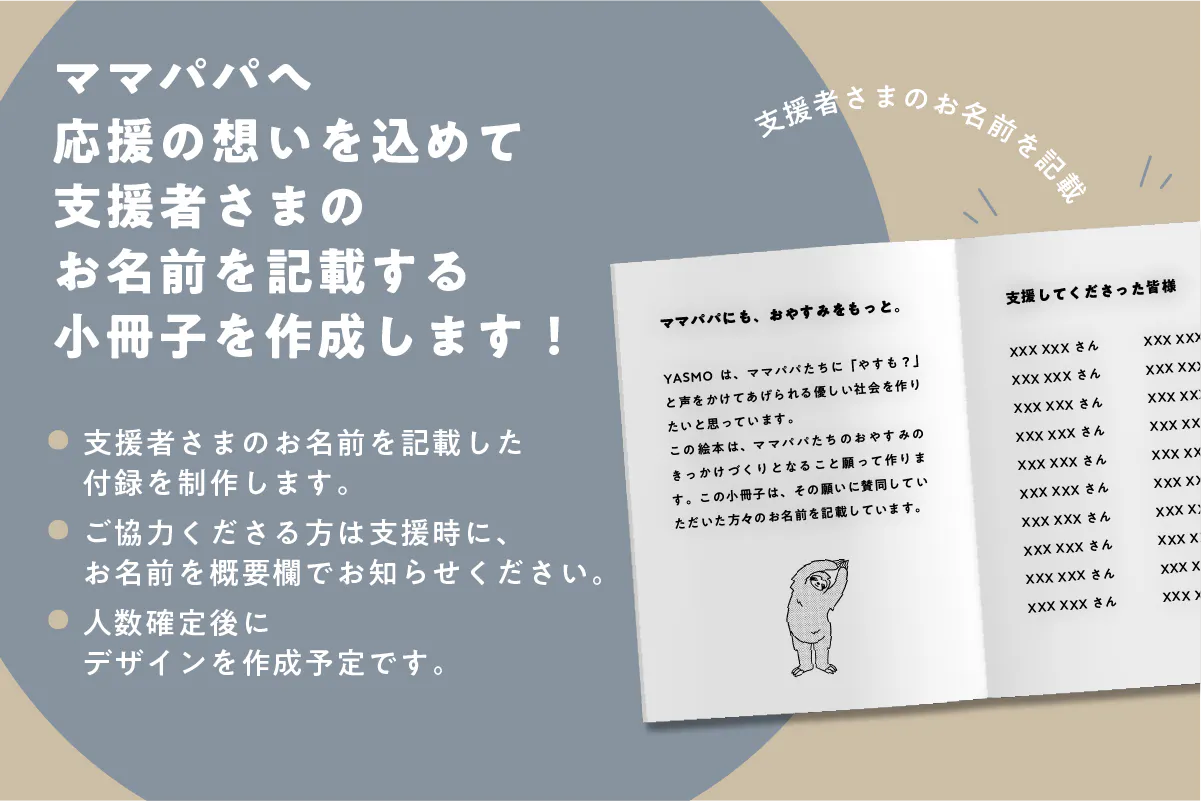 ママパパへ
応援の想いを込めて
支援者さまの
お名前を記載する
小冊子を作成します！
支援者さまのお名前を記載した
付録を制作します。
ご協力くださる方は支援時に、
お名前を概要欄でお知らせください。
人数確定後に
デザインを作成予定です。
支援者さまのお名前を記載
ママパパにも、おやすみをもっと。
YASMO は、ママパパたちに「やすも？」
と声をかけてあげられる優しい社会を作り
たいと思っています。
この絵本は、ママパパたちのおやすみの
きっかけづくりとなること願って作りま
す。この小冊子は、その願いに賛同してい
ただいた方々のお名前を記載しています。
支援してくださった皆様
XXX XXX さん XXX XXX
XXX XXX さん XXX XXX
XXX XXX さん XXX XXX
XXX XXX さん XXX XX
XXX XXX さん XXX XX
XXX XXX さん XXX XX
XXX XXX さん XXX X
XXX XXX さん XXX X
XXX XXX さん XXX X
XXX XXX さん XXX X